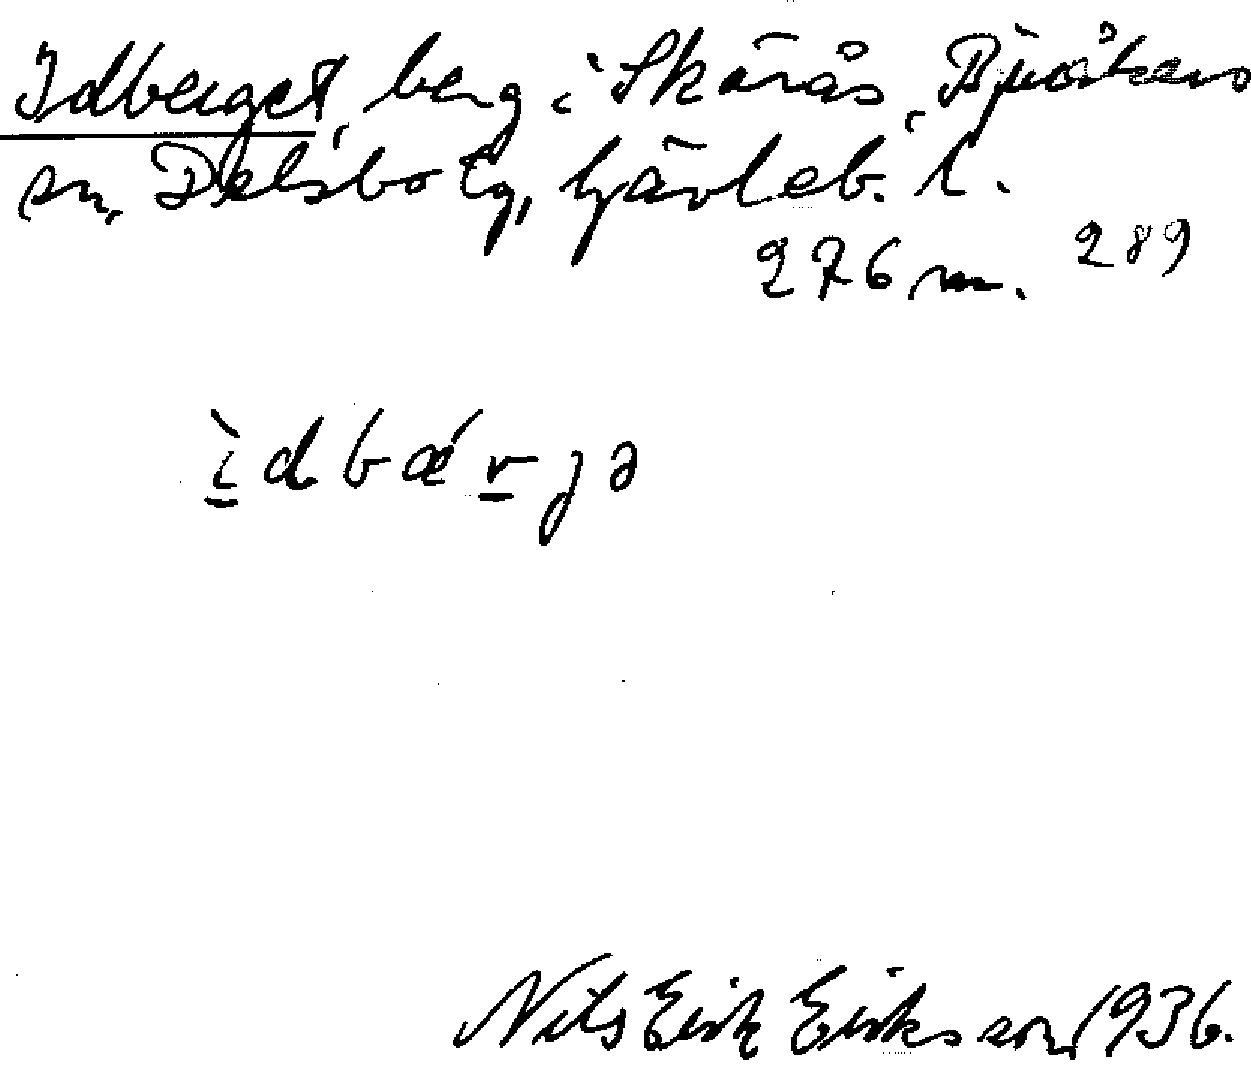 Idberget, berg i Skärås, Bjuråkers
sn, Delsbo tg, Gävleb. l.
276 m. 289
ìdbǽrjə
Nils Erik Eriksson, 1936.